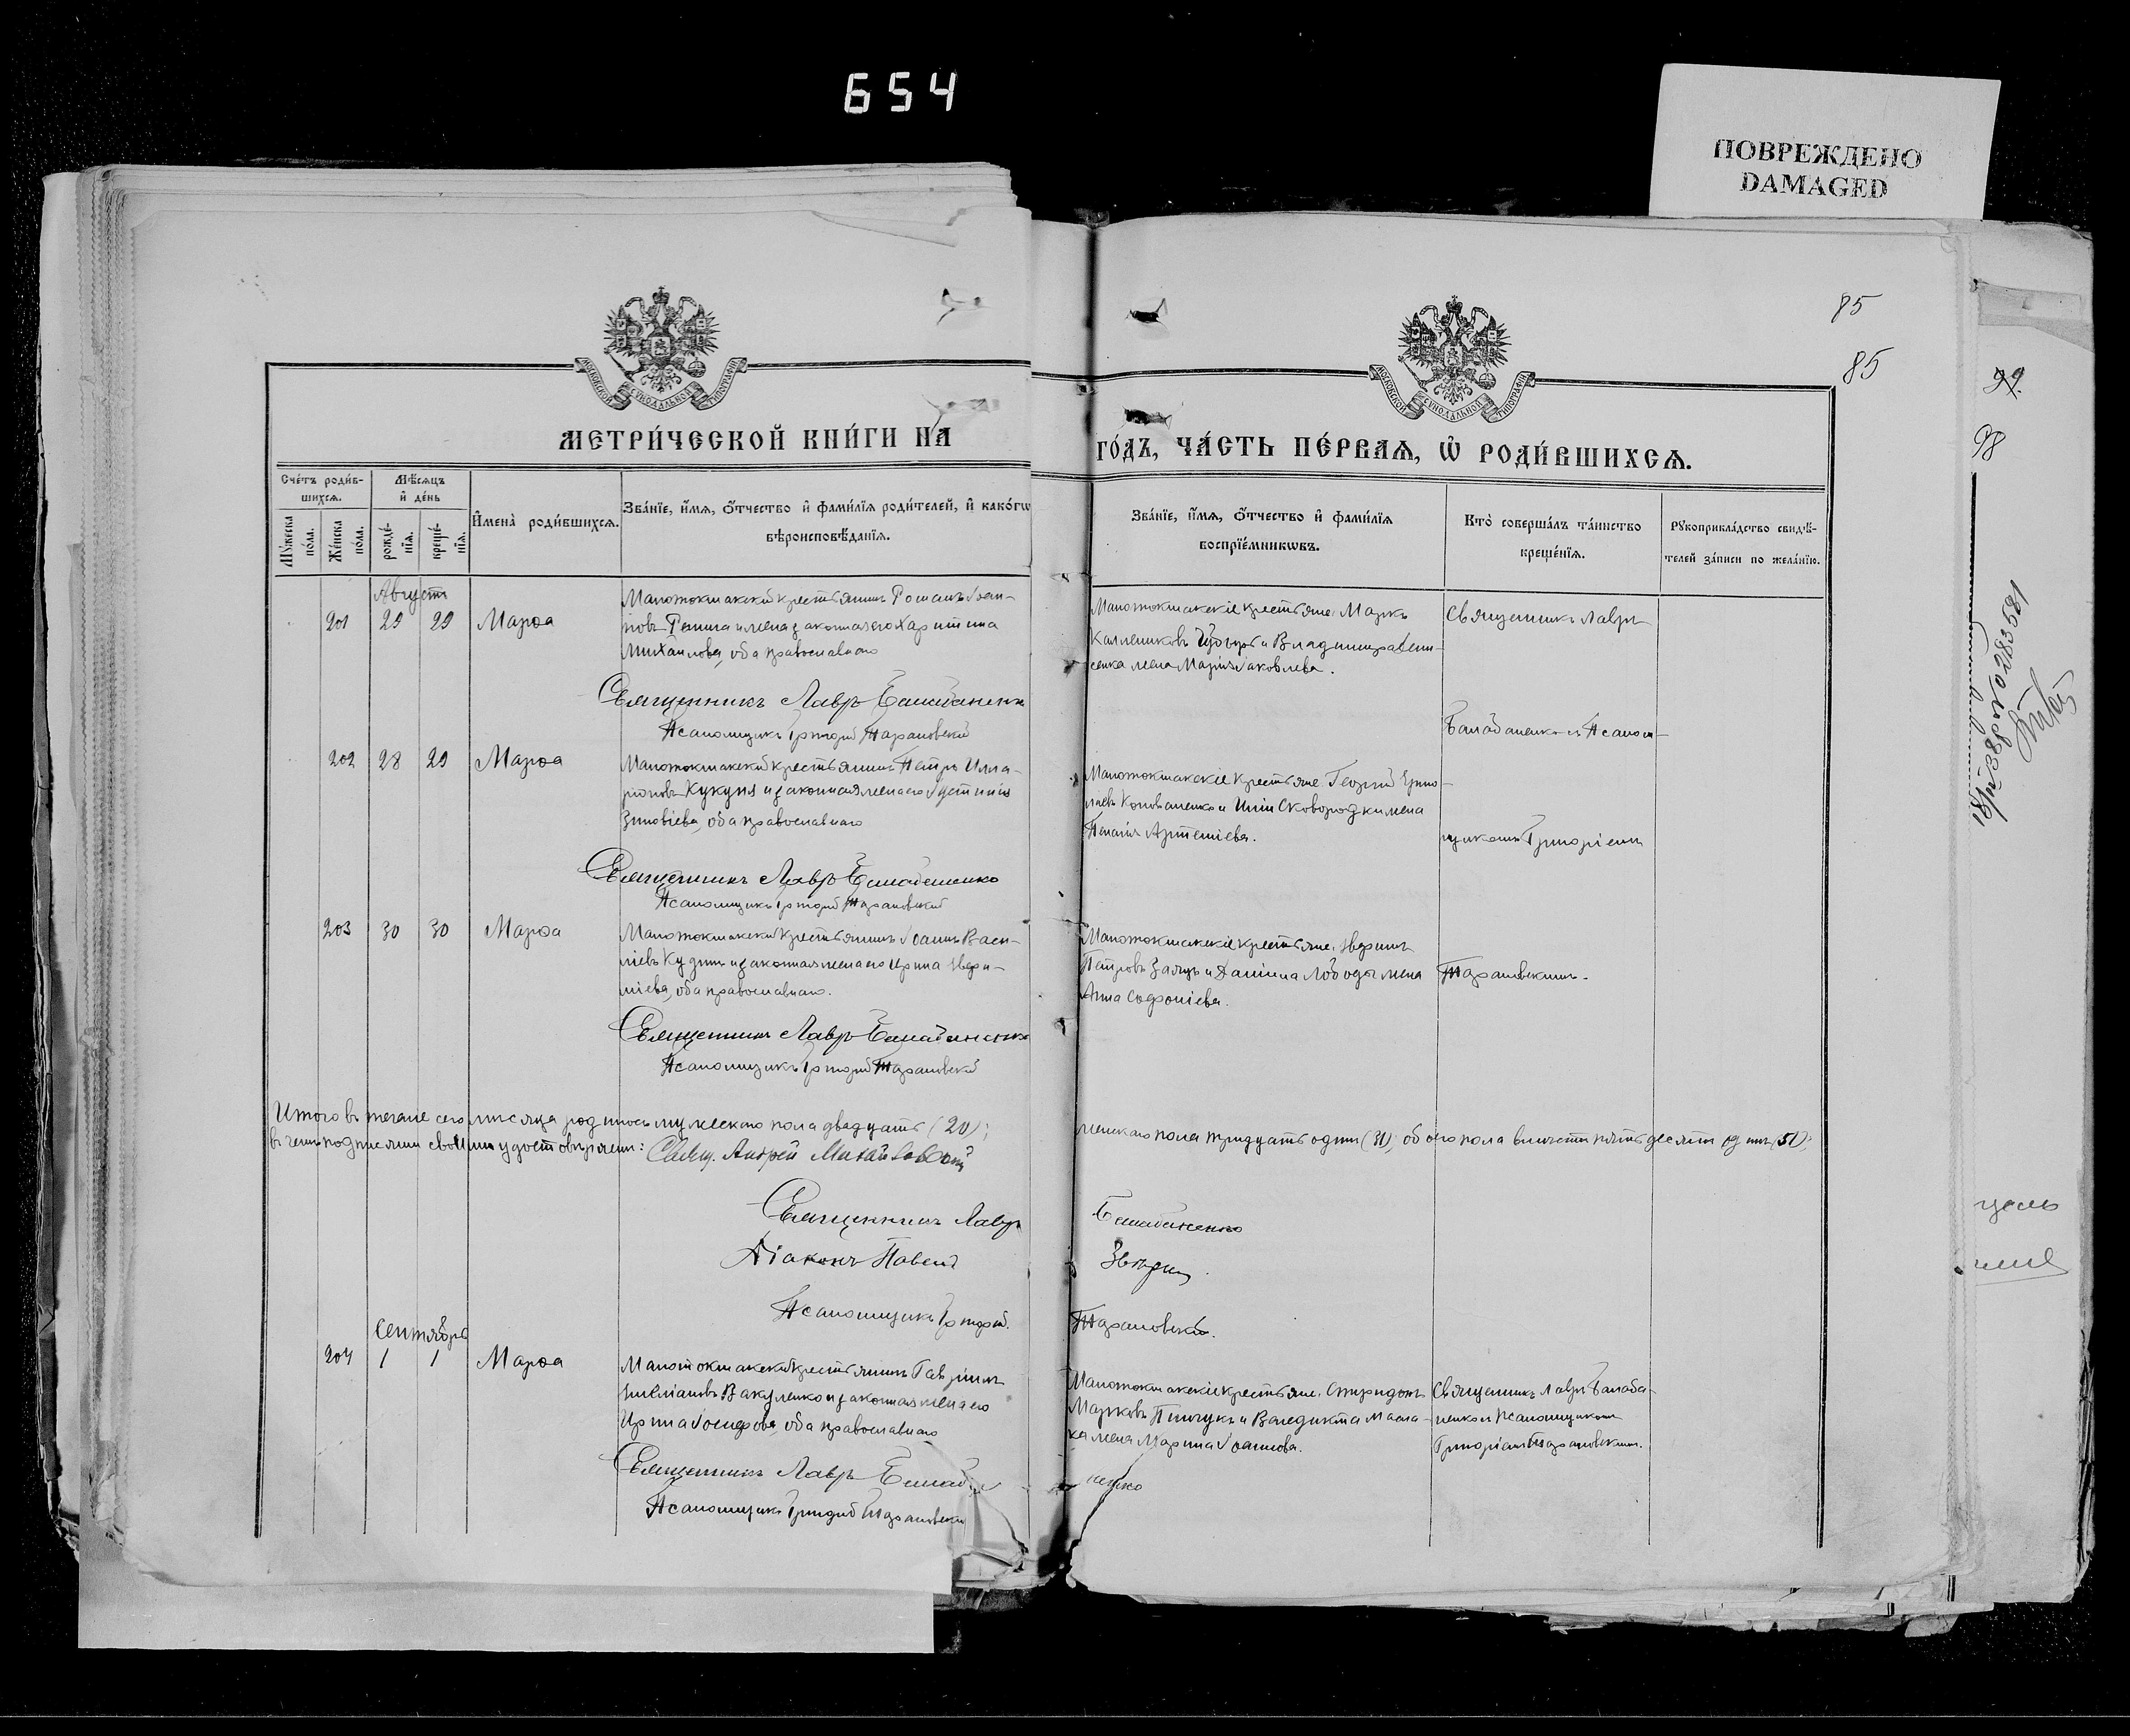 654
ПОВРЕЖДЕНО
DAMAGED
85
85
99.
98
МОСКОВСКОЙ СѴНОДАЛЬНОЙ ТИПОГРАФІИ
МОСКОВСКОЙ СѴНОДАЛЬНОЙ ТИПОГРАФІИ
МЕТРИ́ЧЕСКОЙ КНИ́ГИ НА
ГО́ДЪ, ЧА́СТЬ ПЕ́РВАѦ, Ѡ҆ РОДИ́ВШИХСѦ.
Сче́тъ роди́в-
шихсѧ.
Мѣ́сѧцъ
и҆ де́нь
Мꙋ́жеска по́ла.
Же́нска по́ла.
рожде́-
нїѧ.
креще́-
нїѧ.
И҆мена̀ роди́вшихсѧ.
Зва́нїе, и҆́мѧ, ѻ҆́тчество и҆ фами́лїѧ роди́телей, и҆ како́гѡ
вѣроисповѣ́данїѧ.
Зва́нїе, и҆́мѧ, ѻ҆́тчество и҆ фами́лїѧ
воспрїе́мникѡвъ.
Кто̀ соверша́лъ та́инство
креще́нїѧ.
Рꙋкоприкла́дство свидѣ́-
телей за́писи по жела́нїю.
Августъ
201 29 29 Марѳа
Малотокмакскій крестьянинъ Романъ Іоан-
новъ и жена законная его Харитина
Михаилова, оба православнаго
Малотокмакскіе крестьяне: Маркъ
Калениковъ и Владимира
жена Марія Іаковлева.
Священникъ Лавръ
Священникъ Лавръ Балабаненко
Псаломщикъ Григорій Тарановскій
Балабаненко и Псалом-
202 28 29 Марѳа
Малотокмакскій крестьянинъ Петръ Илла-
ріоновъ Кукуня и законная жена его Іустинія
Зиновіева, оба православнаго
Малотокмакскіе крестьяне: Георгій Ермо-
лаевъ Коноваленко и Сковородки жена
Пелагія Артеміева.
щикомъ Григоріемъ
Священникъ Лавръ Балабаненко
Псаломщикъ Григорій Тарановскій
203 30 30 Марѳа
Малотокмакскій крестьянинъ Іоаннъ Васи-
ліевъ Кудинъ и законная жена его Ирина
оба православнаго.
Малотокмакскіе крестьяне:
Петровъ Заяцъ и Даніила Лободы жена
Анна Софроніева.
Тарановскимъ.
Священникъ Лавръ Балабаненко
Псаломщикъ Григорій Тарановскій
Итого въ теченіе сего мѣсяца родилось мужескаго пола двадцать (20);
женскаго пола тридцать одинъ (31); обоего пола вмѣстѣ пятьдесятъ одинъ (51);
въ чемъ подписями своими удостовѣряемъ: Свящ. Андрей Михайловскій
Священникъ Лавръ
Балабаненко
Діаконъ Павелъ
Псаломщикъ Григорій
Тарановскій.
Сентябрь
204 1 1 Марѳа
Малотокмакскій крестьянинъ Гавріилъ
Вакуленко и законная жена его
Ирина Іосифова, оба православнаго
Малотокмакскіе крестьяне: Спиридонъ
Марковъ Пинчукъ и Венедикта Масла-
ка жена Марина Іоаннова.
Священникъ Лавръ Балаба-
ненко и Псаломщикомъ
Григоріемъ Тарановскимъ.
Священникъ Лавръ Балаба
ненко
Псаломщикъ Григорій Тарановскій